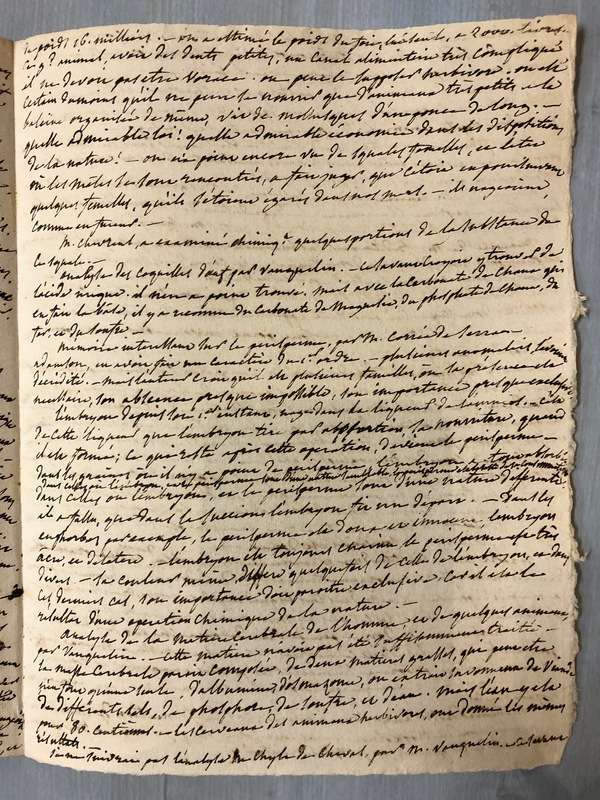 le poids 16 milliers. — on a estimé le poids du foie, lui seul, a 2000 livres.
cet animal, avoir des dents petites, un canal alimentaire très compliqué
il ne devoit pas etre vorace. on peut le supposer herbivore. on est
certain du moins qu'il ne peut se nourrir que d'animaux tres petits. et la
baleine organisée de meme, vit de mollusques d'une pouce de long. —
quelle admirable loi! quelle admirable économie dans les dispositions
de la nature! — on n'a point encore vu de squales femelles, ce
ou les males se sont rencontrés, a fait juger, que c'étoit en poursuivant
quelques femelles, qu'ils s'étoient égarés dans nos mers. — ils nageoient
comme en fureur. —
M. Chevreul, a examiné chimiq.t quelques portions de la substance de
ce squale. —
analyse des coquilles d'œuf par Vauquelin. — ce savant croyoit y trouver de
l'acide urique. il n'en a point trouvé. mais avec le carbonate de chaux qui
en fait la base, il y a reconnu du carbonate de magnésie, du phosphate de chaux, du
fer, et du soufre. —
Mémoire interessant sur le perisperme, par M. Corréa de Serra. —
adanson, en avoit fait un caractère du 1.er ordre. — plusieurs anomalies, l'avoient
décidité. — mais l'auteur croit qu'il est plusieurs familles, ou la présence est
necessaire, son absence presque impossible, son importance presque exclusive.
l'embryon depuis son 1.er instant, nage dans la liqueur de l'amnios. — c'est
de cette liqueur que l'embryon tire par absorption sa nourriture, quand
il est formé; ce qui reste après cette operation, devient le perisperme. —
dans les graines ou il n'y a point de perisperme, l'embryon a tout absorbé.
dans celles ou l'embryon, et le perisperme sont d'une nature differente
il a fallu, que dans la succion l'embryon fit un départ. — Dans les
euphorbes par exemple, le perisperme est doux et innocent, l'embryon
acre, et délétere. — l'embryon est toujours charnu le perisperme est très
divers. — la couleur même differe quelquefois de celle de l'embryon, et dans
ces derniers cas, son importance doit paroitre exclusive. car il est le
résultat d'une operation chimique de la nature. —
Analyse de la matiere cerebrale de l'homme, et de quelques animaux,
par Vauquelin. — Cette matiere n'avoit pas été suffisamment traitée. —
la masse cerebrale paroit composée, de deux matieres grasses, qui peut etre
n'en font qu'une seule, d'albumine, d'osmazome, ou extrait savonneux de viande
de differents sels, de phosphore, de soufre, et d'eau. mais l'eau y est
pour 80. centiemes. — les cerveaux des animaux herbivores, ont donné les memes
résultats.
je ne suivrai pas l'analyse du chyle de cheval, par M. Vauquelin. — ce savant